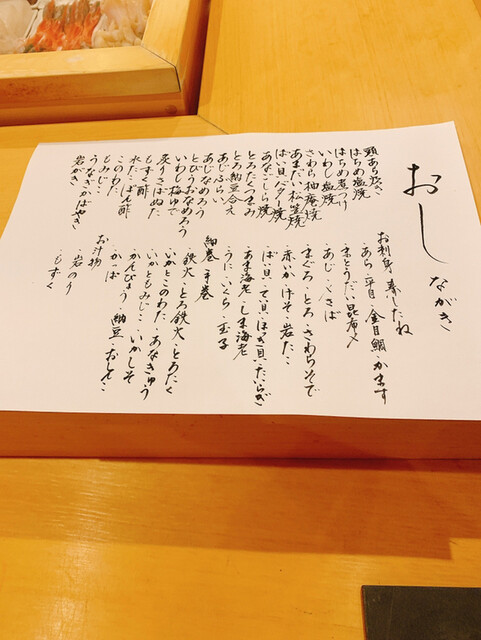 おしながき
頭あら炊き
はちめ塩焼
はちめ煮つけ
いわし塩焼
さわら柚庵焼
あまだい松笠焼
ばい貝バター焼
あなごしら焼
とろたくつまみ
とろ納豆合え
あじふらい
あじなめろう
とびうおなめろう
いわし梅ゆで
炙りさばぬた
もずく酢
水だこぽん酢
このわた
もみじこ
うなぎかばやき
岩がき
お刺身・寿したね
・あら・平目・金目鯛・かます
・まとうだい昆布〆
・あじ・〆さば
・まぐろ・とろ・さわらそで
・赤いか・げそ・岩だこ
・ばい貝・て貝・ほっき貝・たいらぎ
・あま海老・しま海老
・うに・いくら・玉子
細巻・手巻
・鉄火・とろ鉄火・とろたく
・いかとこのわた・あなきゅう
・いかともみじこ・いかしそ
・かんぴょう
・かっぱ・納豆・おしんこ
お汁物・岩のり
・もずく